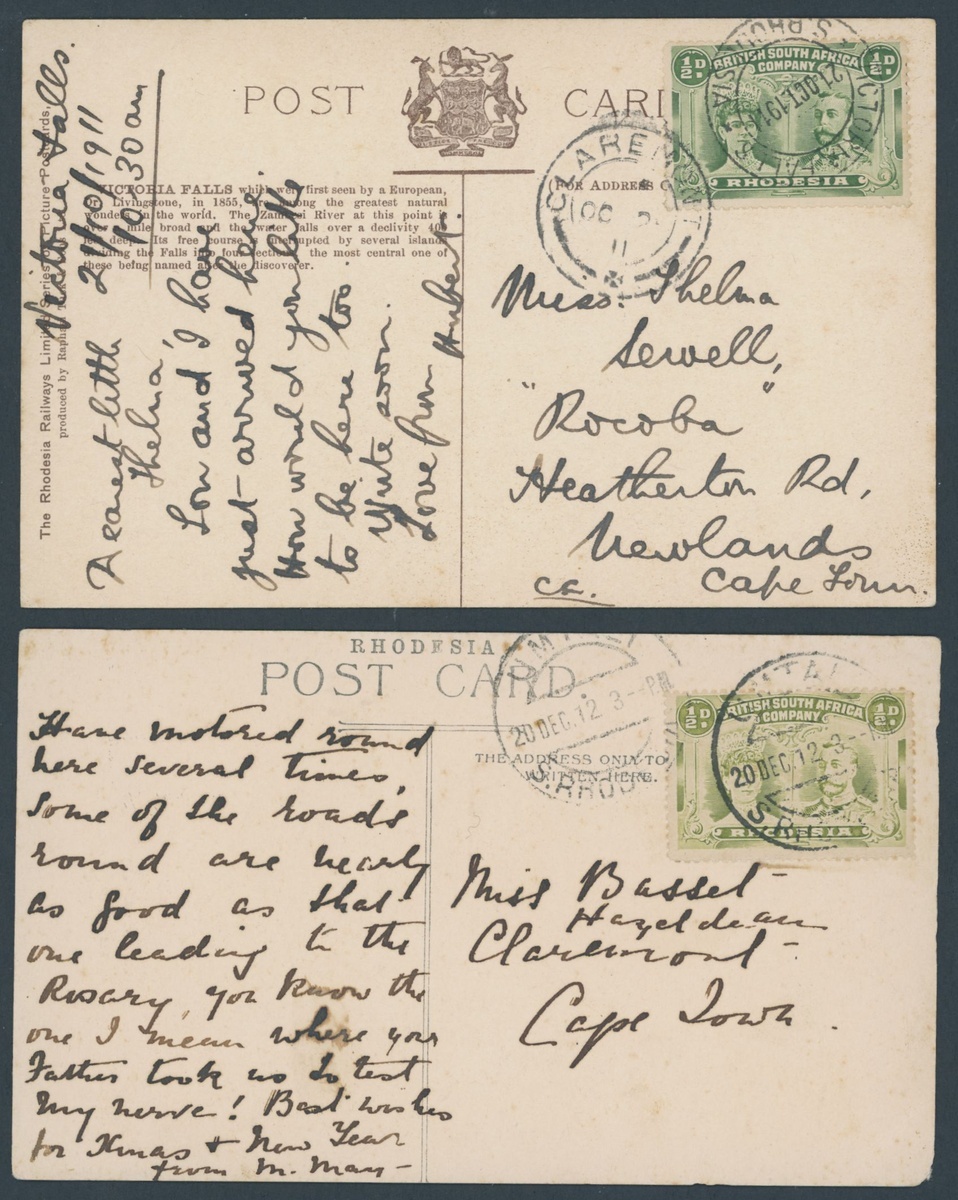 POST CARD
VICTORIA FALLS which were first seen by a European,
Dr. Livingstone, in 1855, are among the greatest natural
wonders in the world. The Zambesi River at this point is
over a mile broad and the water falls over a declivity 40
feet deep. Its free course is interrupted by several islands
dividing the Falls into four sections, the most central one of
these being named after the discoverer.
The Rhodesia Railways Limited Series of Picture Postcards,
produced by Raphael
Victoria Falls.
21/10/1911
10.30 am
Dearest little
Thelma,
Lou and I have
just arrived here
How would you like
to be here too
Write soon.
Love from Hubert.
FOR ADDRESS
½D BRITISH SOUTH AFRICA ½D
COMPANY
RHODESIA
VICTORIA FALLS S. RHODESIA
21 OCT 1911
CLAREMONT
OC
11
Miss. Thelma
Sewell,
"Rocoba"
Heatherton Rd,
Newlands
ca. Cape Town.
RHODESIA
POST CARD.
THE ADDRESS ONLY TO
WRITTEN HERE.
UMTALI
20 DEC.12 3--PM
S.RHODESIA
½D BRITISH SOUTH AFRICA ½D
COMPANY
RHODESIA
UMTALI
20 DEC.12 3
S.RHO
Have motored round
here several times,
Some of the roads
round are nearly
as good as that
one leading to the
Rosary, you know the
one I mean where your
Father took us to test
my nerve! Best wishes
for Xmas & New Year
from M. May -
Miss Basset
Hazeldean
Claremont -
Cape Town.